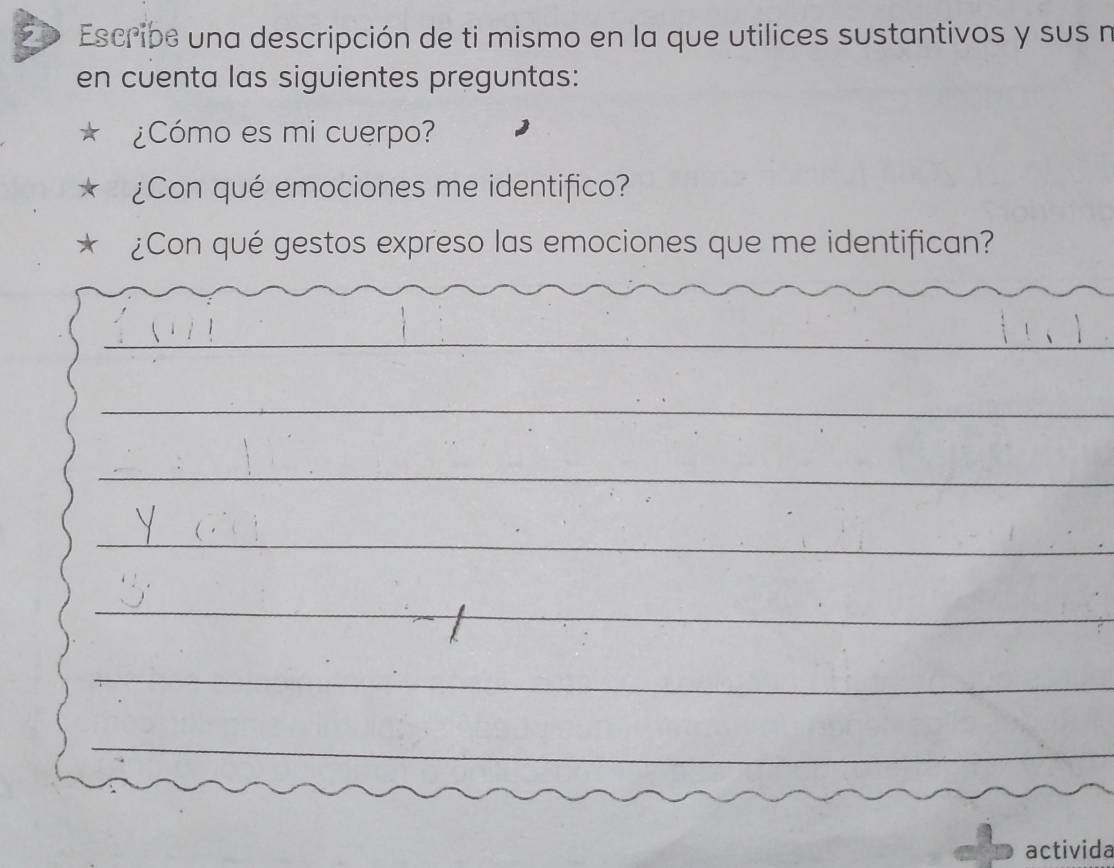 2 Escribe una descripción de ti mismo en la que utilices sustantivos y sus
en cuenta las siguientes preguntas:
★ ¿Cómo es mi cuerpo?
★ ¿Con qué emociones me identifico?
★ ¿Con qué gestos expreso las emociones que me identifican?
y
activida